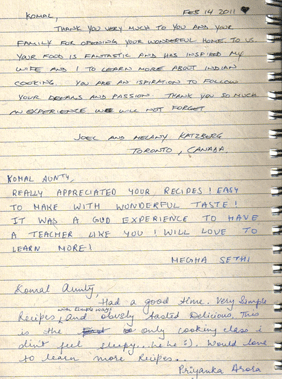 FEB 14 2011 ♥
KOMAL,
THANK YOU VERY MUCH TO YOU AND YOUR
FAMILY FOR OPENING YOUR WONDERFUL HOME TO US.
YOUR FOOD IS FANTASTIC AND HAS INSPIRED MY
WIFE AND I TO LEARN MORE ABOUT INDIAN
COOKING. YOU ARE AN ISPIRATION TO FOLLOW
YOUR DREAMS AND PASSION. THANK YOU SO MUCH
AN EXPERIENCE WE WILL NOT FORGET
JOEL AND MELANY KATZBERG
TORONTO, CANADA.
KOMAL AUNTY,
REALLY APPRECIATED YOUR RECIPES! EASY
TO MAKE WITH WONDERFUL TASTE!
IT WAS A GUD EXPERIENCE TO HAVE
A TEACHER LIKE YOU! WILL LOVE TO
LEARN MORE!
MEGHA SETHI
Komal Aunty,
Had a good time. Very Simple
Recipes, (with simple ways) and obvsly tasted Delicious. This
is the only cooking class i
din't feel sleepy.. he he :). Would love
to learn more Recipes..
Priyanka Arora